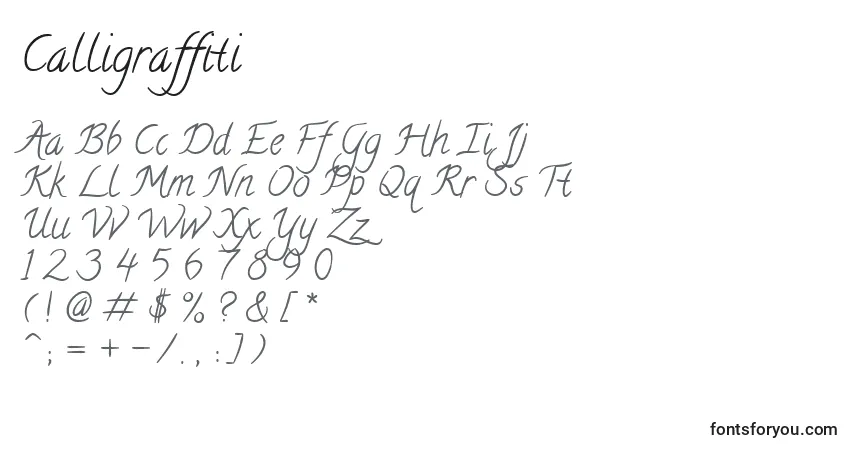 Calligraffiti
Aa Bb Cc Dd Ee Ff Gg Hh Ii Jj
Kk Ll Mm Nn Oo Pp Qq Rr Ss Tt
Uu Vv Ww Xx Yy Zz
1 2 3 4 5 6 7 8 9 0
( ! @ # $ % ? & [ *
^ ; = + - / . , : ] )
fontsforyou.com